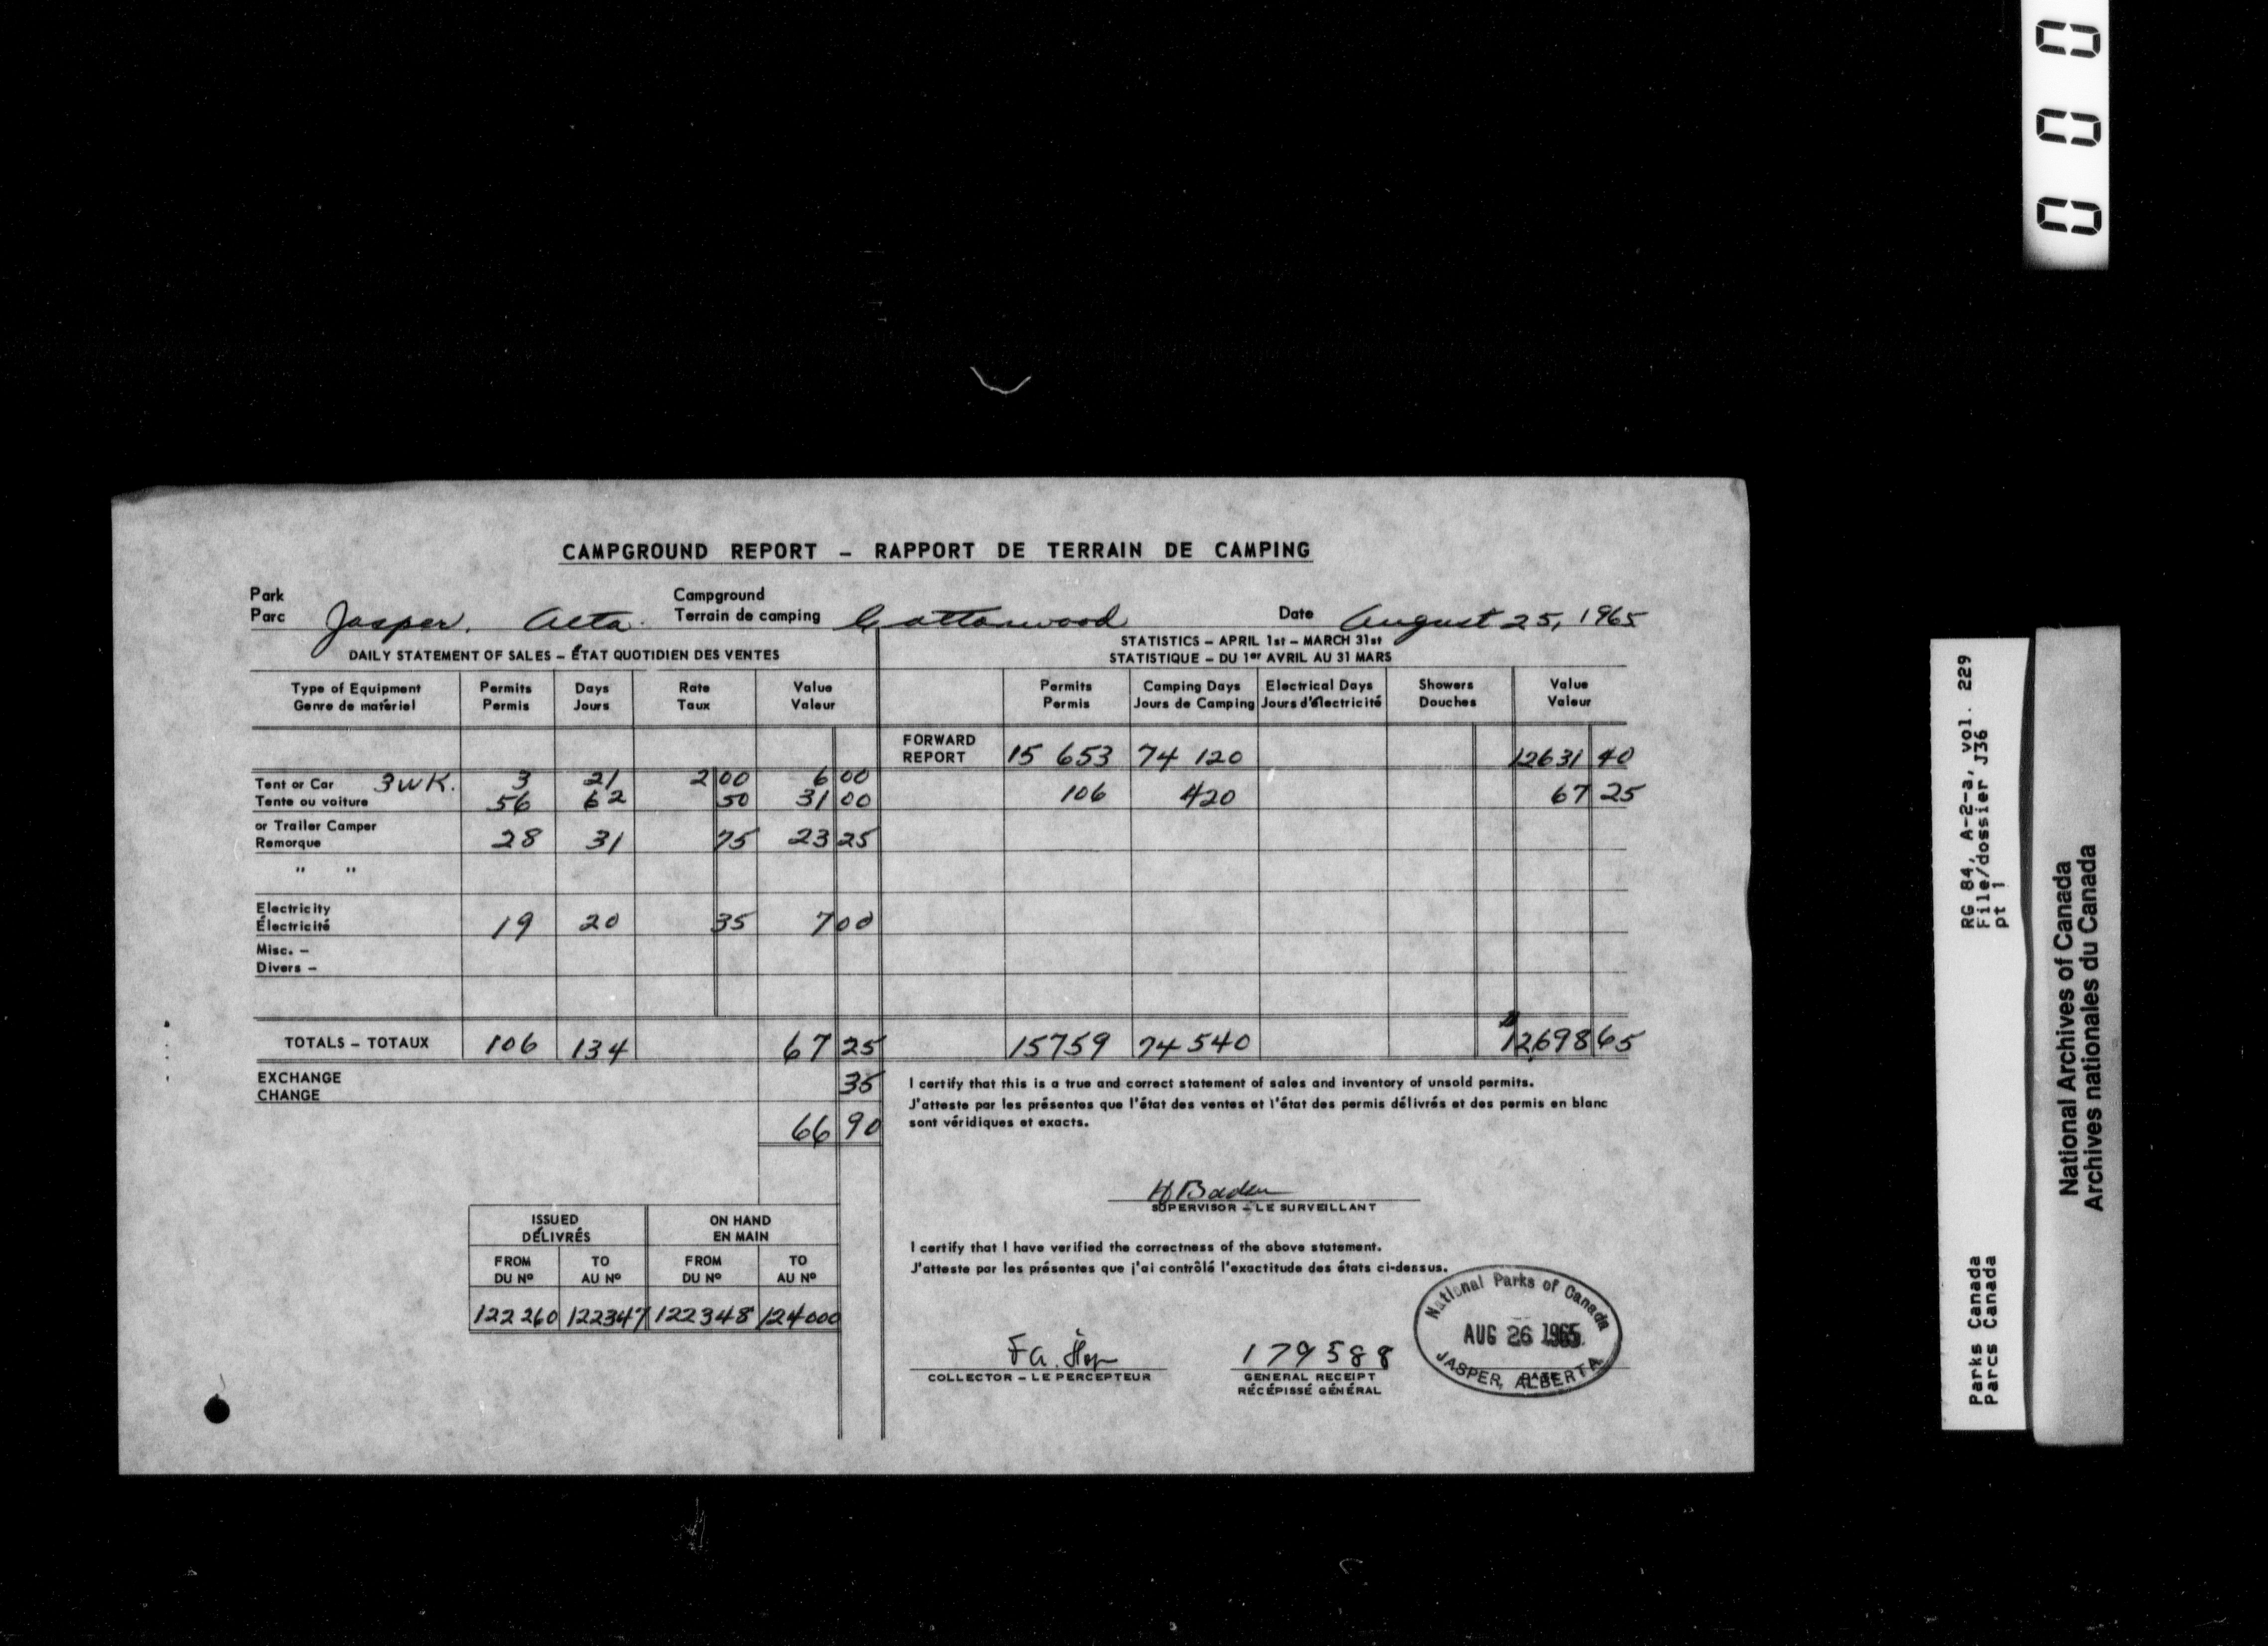 CAMPGROUND REPORT – RAPPORT DE TERRAIN DE CAMPING
Park
Parc Jasper. Alta.
Campground
Terrain de camping Cottonwood
Date August 25, 1965
DAILY STATEMENT OF SALES – ÉTAT QUOTIDIEN DES VENTES
STATISTICS – APRIL 1st – MARCH 31st
STATISTIQUE – DU 1er AVRIL AU 31 MARS
Type of Equipment Permits Days Rate Value
Genre de matériel Permis Jours Taux Valeur
Permits Camping Days Electrical Days Showers Value
Permis Jours de Camping Jours d'électricité Douches Valeur
FORWARD
REPORT 15 653 74 120 12631 40
Tent or Car 3 WK. 3 21 2 00 6 00
Tente ou voiture 56 62 50 31 00
106 420 67 25
or Trailer Camper
Remorque 28 31 75 23 25
" "
Electricity
Électricité 19 20 35 7 00
Misc. –
Divers –
TOTALS – TOTAUX 106 134 67 25
15759 74 540 12,698 65
EXCHANGE
CHANGE 35
66 90
I certify that this is a true and correct statement of sales and inventory of unsold permits.
J'atteste par les présentes que l'état des ventes et l'état des permis délivrés et des permis en blanc
sont véridiques et exacts.
H Baden
SUPERVISOR – LE SURVEILLANT
ISSUED ON HAND
DÉLIVRÉS EN MAIN
FROM TO FROM TO
DU Nº AU Nº DU Nº AU Nº
122 260 122347 122348 124000
I certify that I have verified the correctness of the above statement.
J'atteste par les présentes que j'ai contrôlé l'exactitude des états ci-dessus.
F a.
COLLECTOR – LE PERCEPTEUR
179588
GENERAL RECEIPT
RÉCÉPISSÉ GÉNÉRAL
National Parks of Canada
AUG 26 1965
JASPER, ALBERTA
DATE
000
RG 84, A-2-a, vol. 229
File/dossier J36
pt 1
Parks Canada
Parcs Canada
National Archives of Canada
Archives nationales du Canada